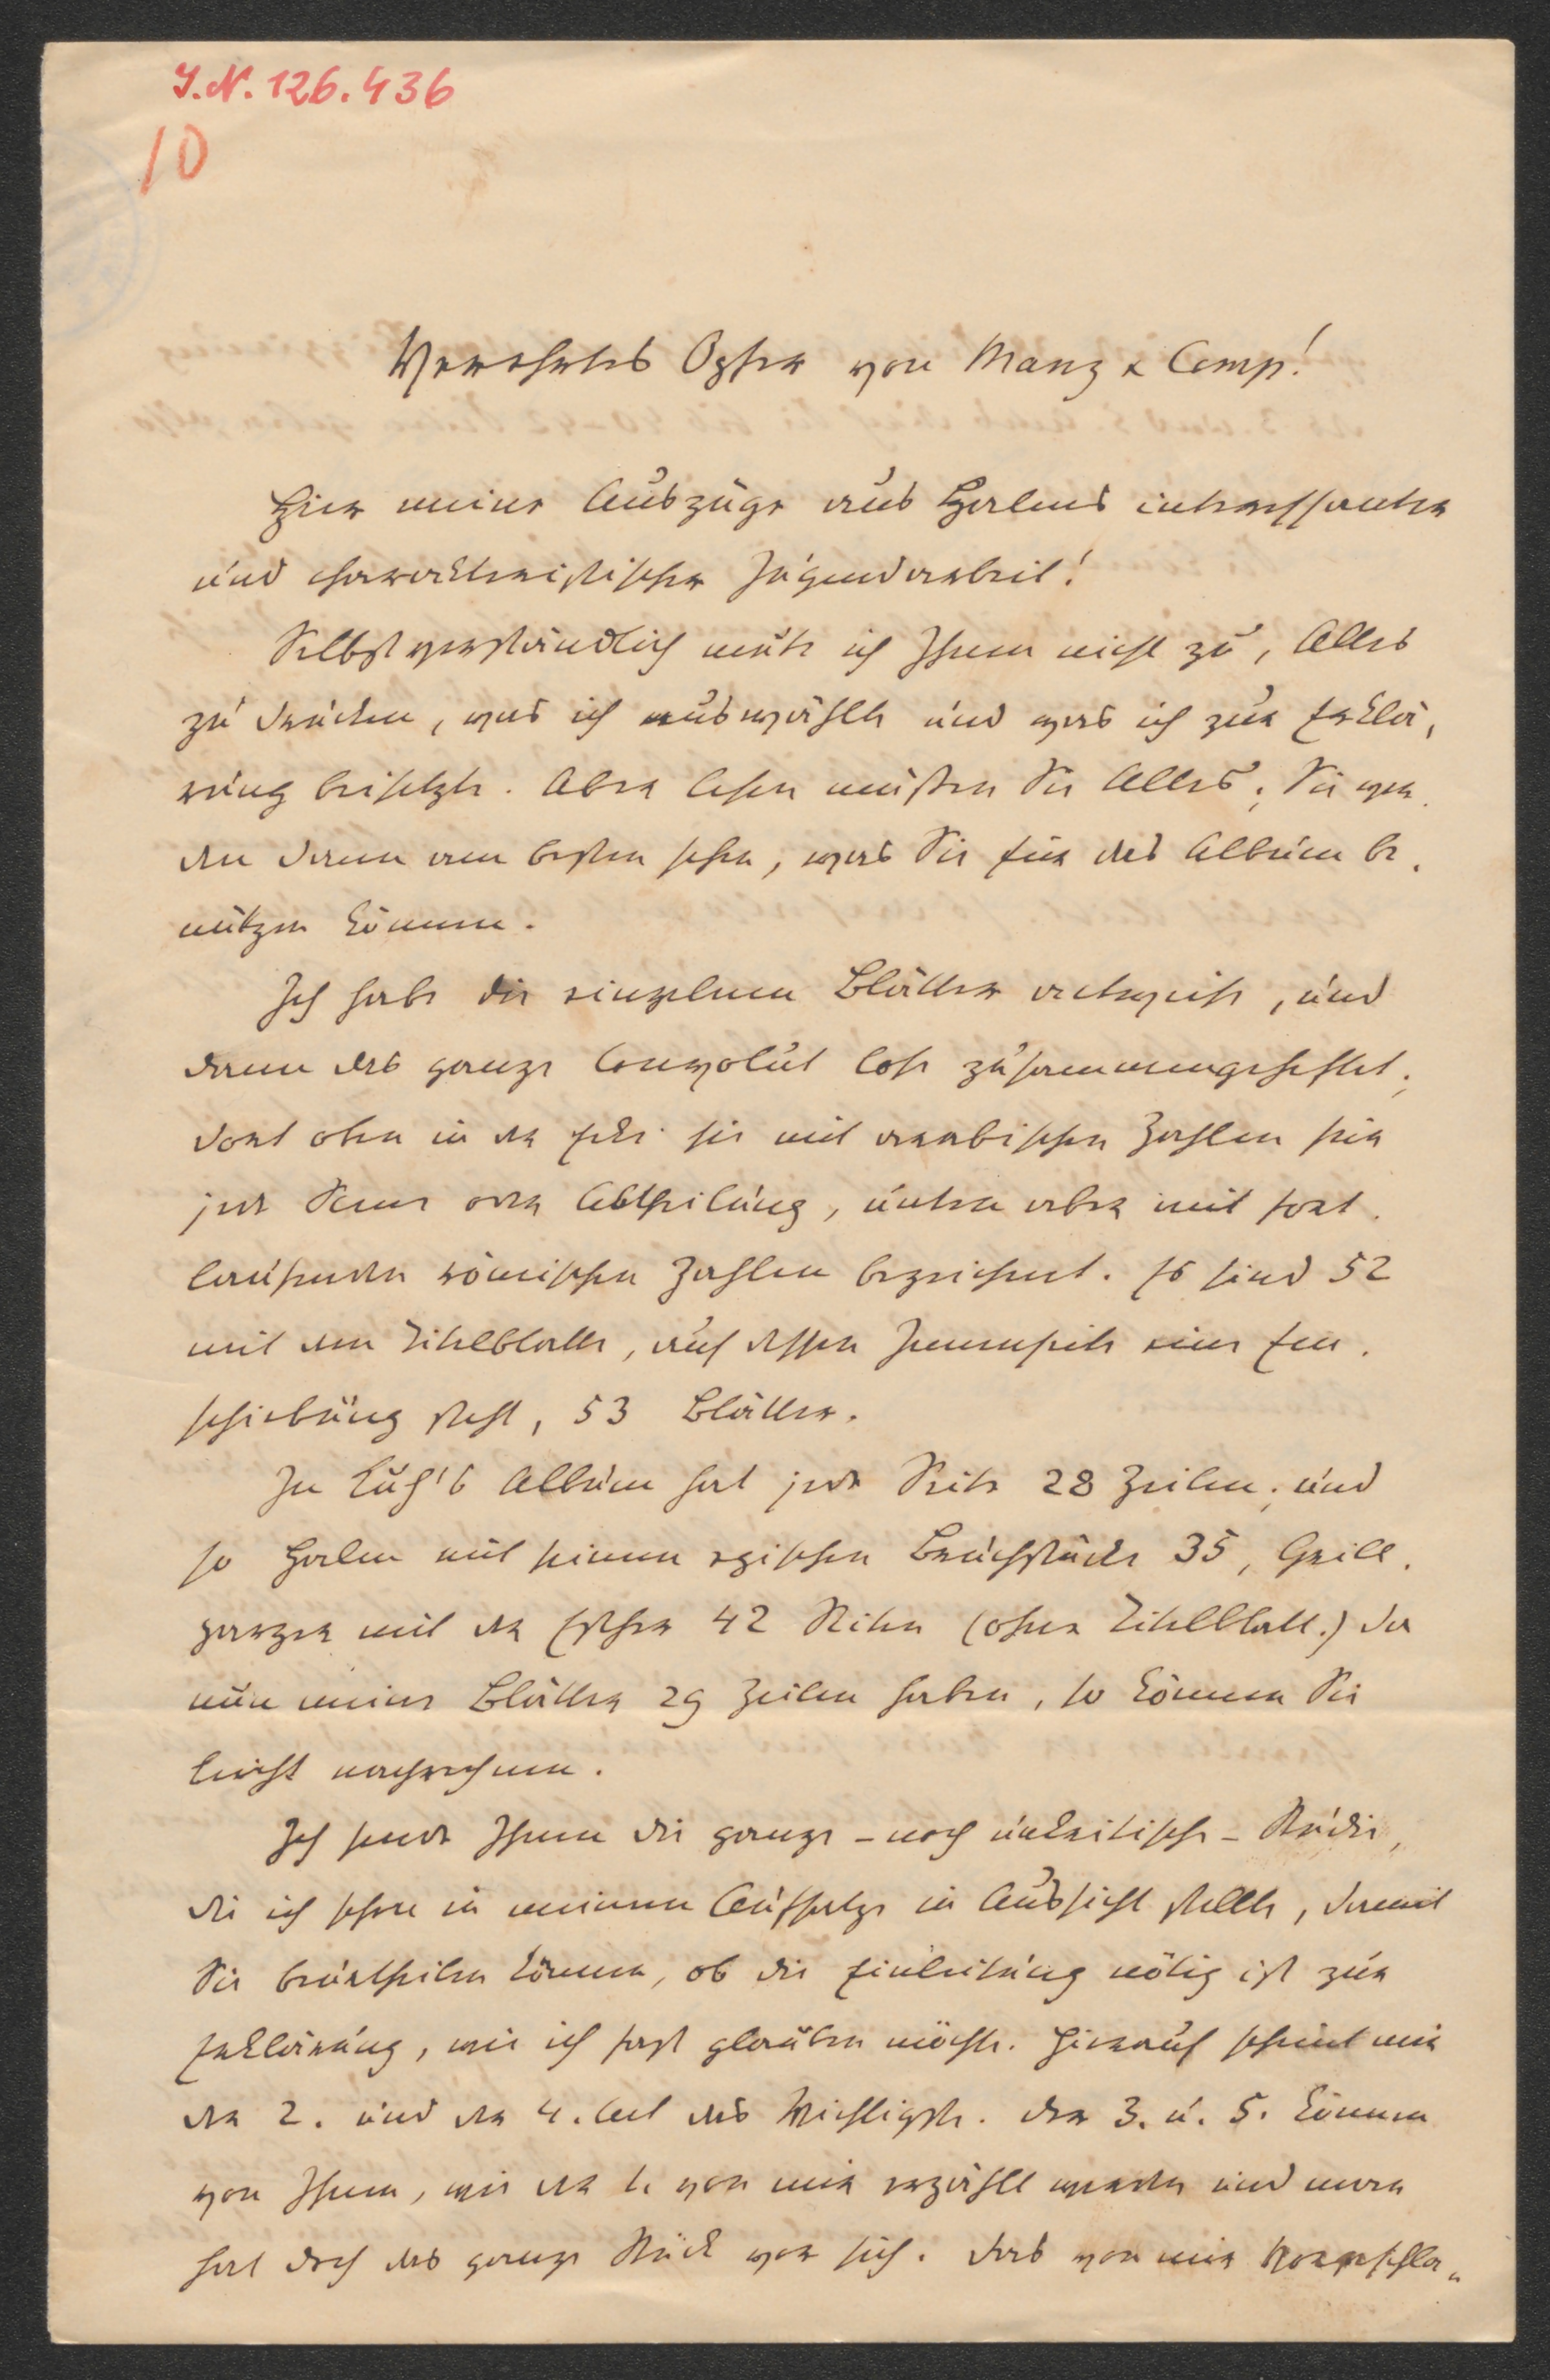 I.N. 126.436
10
Verehrtes Opfer von Manz & Comp!
Hier meine Auszüge aus Halms interessanter
und charakteristischer Jugendarbeit!
Selbstverständlich mute ich Ihnen nicht zu, Alles
zu drucken, was ich auswählte und was ich zur Erklä,
rung beisetzte. Aber lesen müßen Sie Alles; Sie wer
den dann am besten sehen, was Sie für das Album be
nützen können.
Ich habe die einzelnen Blätter actweise, und
dann das ganze Convolut lose zusammengeheftet;
dort oben in der Ecke sie mit arabischen Zahlen für
jede Scene oder Abtheilung, unten aber mit fort
laufenden römischen Zahlen bezeichnet. Es sind 52
mit dem Titelblatte, auf dessen Innenseite eine Ein
schiebung steht, 53 Blätter.
In Kuh's Album hat jede Seite 28 Zeilen; und
so Halm mit seinem epischen Bruchstücke 35, Grill
parzer mit der Esther 42 Seiten (ohne Titelblatt.) Da
nun meine Blätter 29 Zeilen haben, so können Sie
leicht nachrechnen.
Ich sende Ihnen die ganze – noch unkritische – Studie,
die ich schon in meinem Aufsatze in Aussicht stellte, damit
Sie beurtheilen können, ob die Einleitung nötig ist zur
Erklärung, wie ich fast glauben möchte. Hierauf scheint mir
der 2. und der 4. Act das Wichtigste. Der 3. u. 5. können
von Ihnen, wie der 1. von mir erzählt werden und man
hat doch das ganze Stück vor sich. Das von mir Vorgeschla„